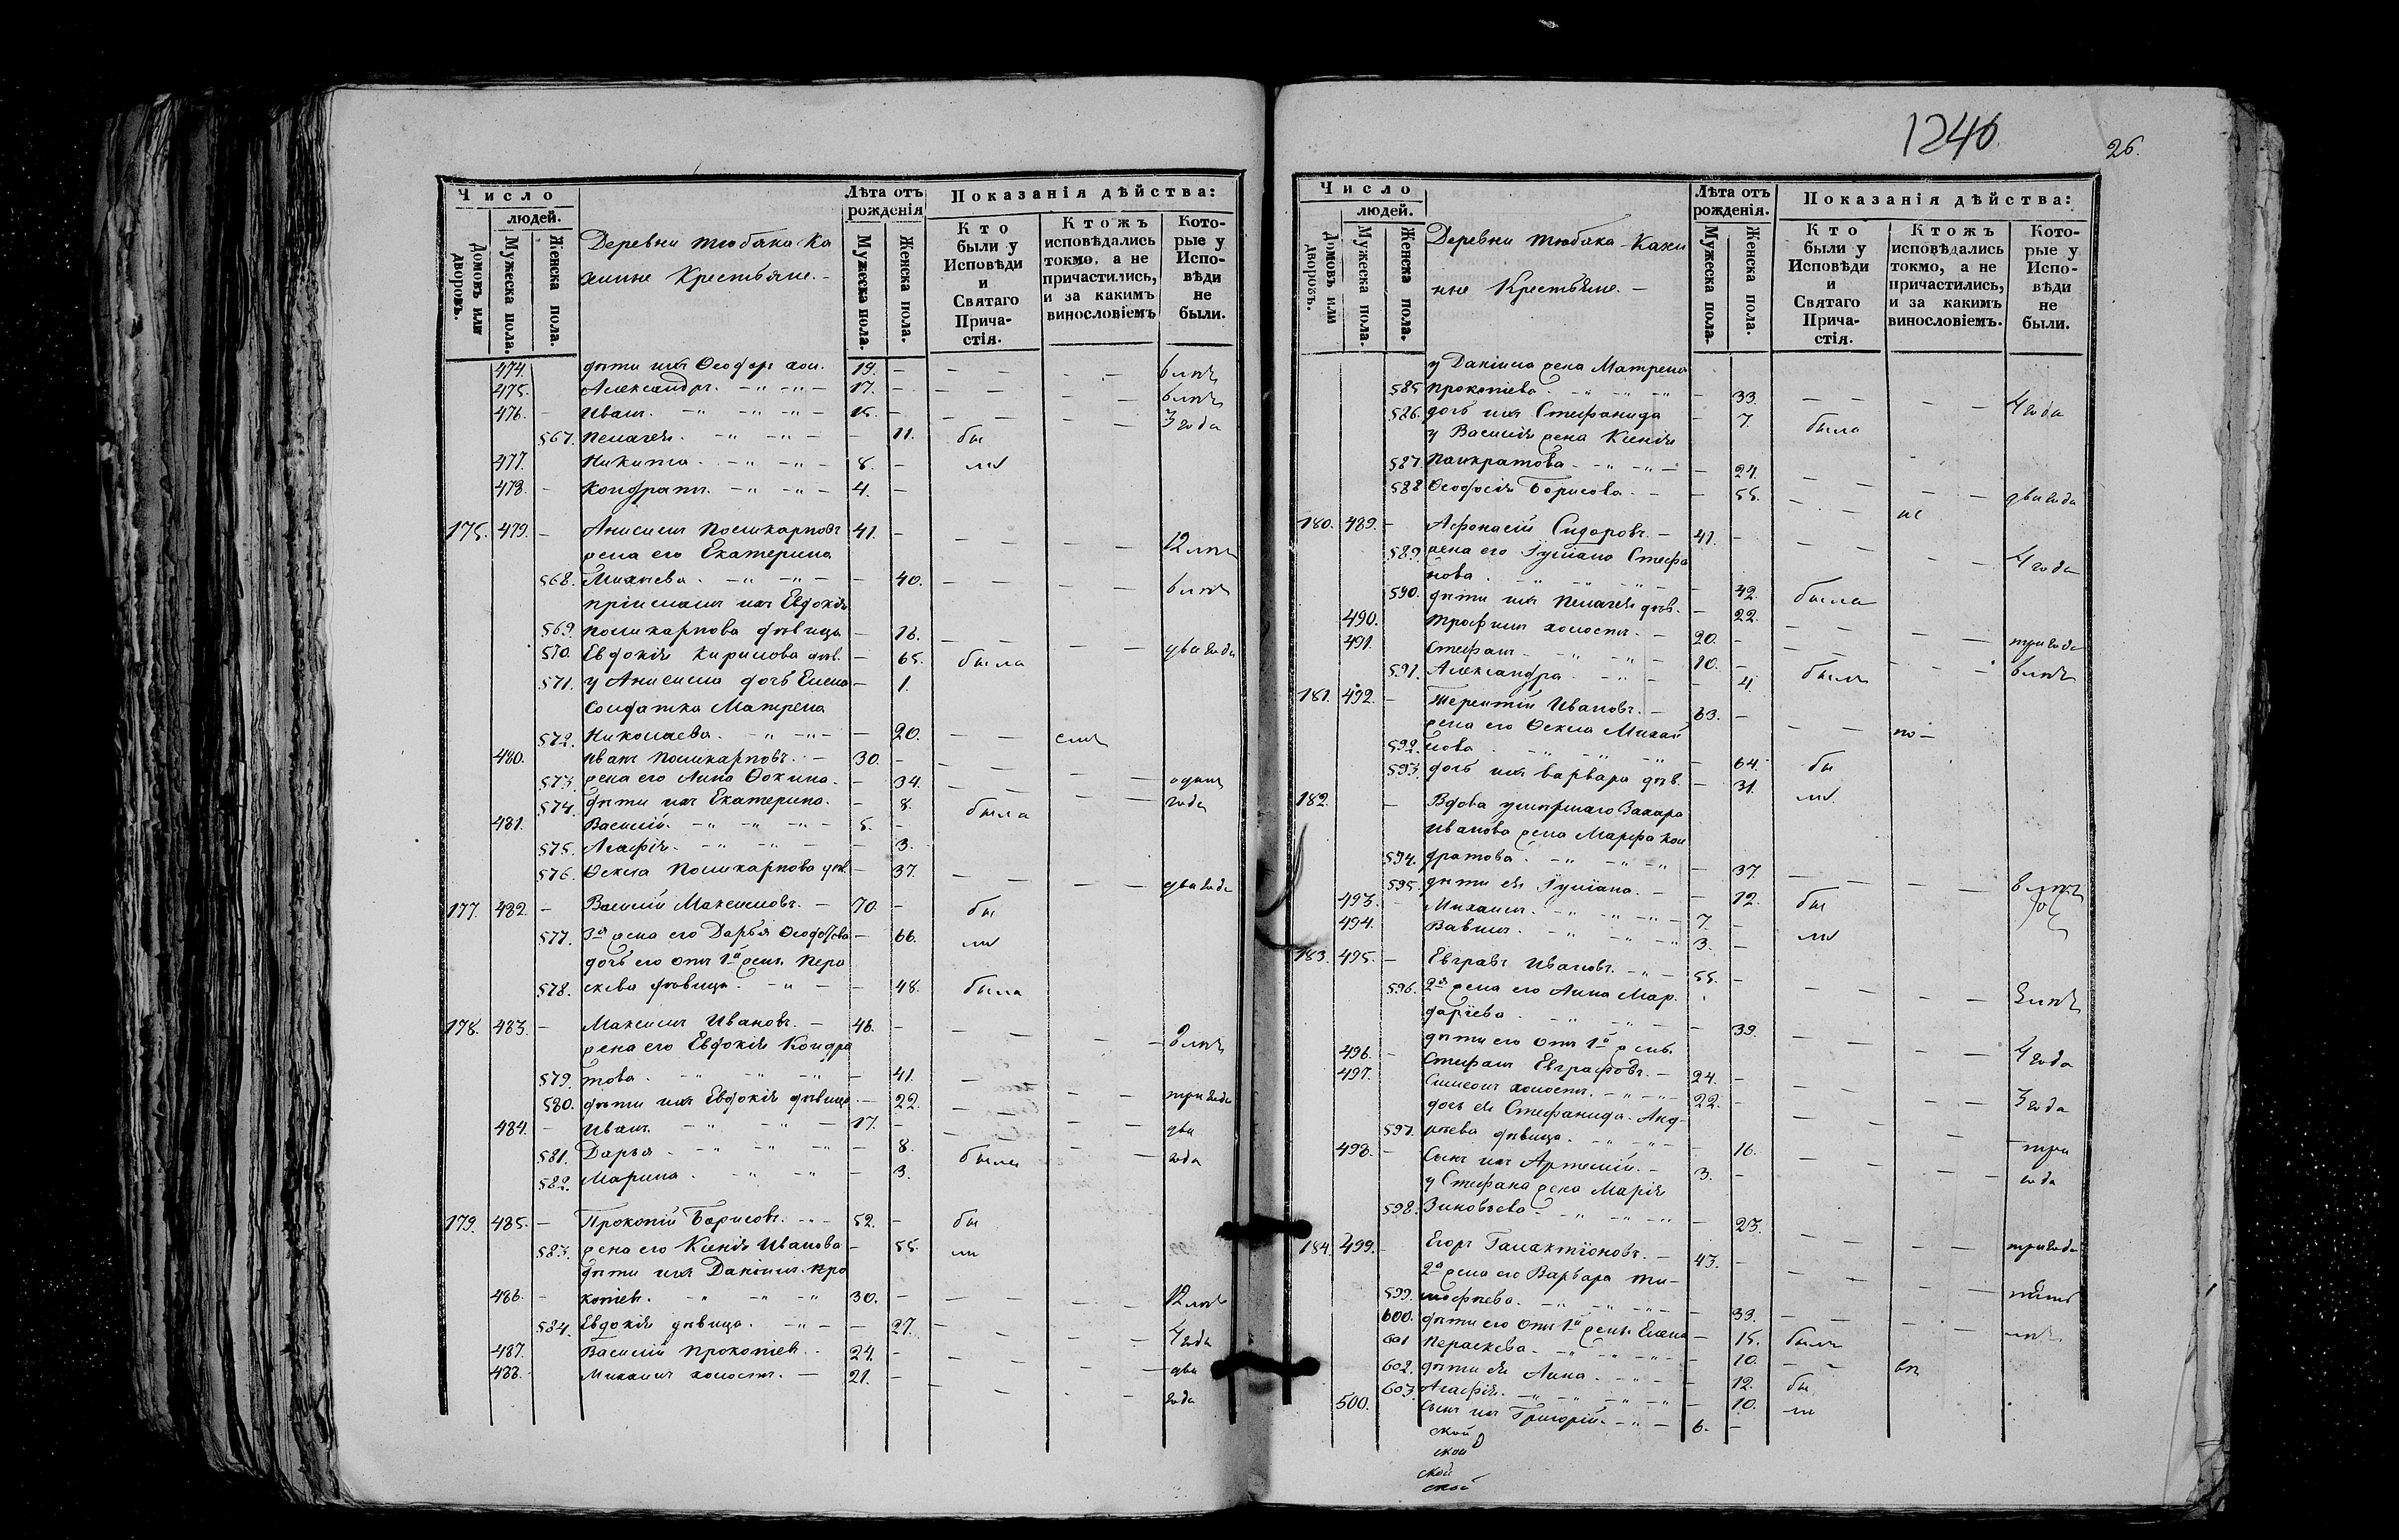 1240.
26.
Число
людей.
Домовъ или дворовъ.
Мужеска пола.
Женска пола.
Деревни Тюбяка Ка
жинье Крестьяне. –
Лѣта отъ рожденія
Мужеска пола.
Женска пола.
Показанія дѣйства:
Кто были у Исповѣди и Святаго Прича-стія.
Ктожъ исповѣдались токмо, а не причастились, и за какимъ винословіемъ
Кото-рые у Испо-вѣди не были.
474. дѣти ихъ Ѳеодоръ хол. 19. –
475. Александръ. 17. –
476. – Иванъ. 15. – 3 года
567. Пелагея. – 11. бы
477. Никита. 8. – ли
478. – Кондратъ. 4. –
175. 479. – Анисимъ Поликарповъ 41. – 12 лѣтъ
жена его Екатерина
568. Михѣева. – 40.
пріемышъ ихъ Евдокія
569. Поликарпова дѣвица – 16. два года
570. Евдокія Кирилова дѣв. – 65. была
571. у Анисима дочь Елена – 1.
Солдатка Матрена
572. Николаева. – 20.
480. Иванъ Поликарповъ. – 30. –
573. жена его Анна Фокина. – 34. одинъ
574. дѣти ихъ Екатерина. – 8. была года
481. Василій. 5. –
575. Агафія. – 3.
576. Ѳекла Поликарпова дѣв. – 37. два года
177. 482. – Василій Максимовъ. – 70. – бы
577. 3я жена его Дарья Ѳеодорова – 66. ли
дочь его отъ 1й жены Пера
578. скева дѣвица. – 48. была
178. 483. – Максимъ Ивановъ. – 46. –
жена его Евдокія Кондра
579. това. – 41.
580. дѣти ихъ Евдокія дѣвица. – 22. три года
484. – Иванъ 17. – два
581. Дарья – 8. были года
582. Марина. – 3.
179. 485. – Прокопій Борисовъ. 52. – бы
583. жена его Ксенія Иванова – 55. ли
дѣти ихъ Даніилъ Про
486. – копіевъ. 30. – 12 лѣтъ
584. Евдокія дѣвица. – 27. 4 года
487. Василій Прокопіевъ. 24. – два
488. – Михаилъ холостъ. – 21. – года
Число
людей.
Домовъ или дворовъ.
Мужеска пола.
Женска пола.
Деревни Тюбяка – Кажи
нье Крестьяне. –
Лѣта отъ рожденія.
Мужеска пола.
Женска пола.
Показанія дѣйства:
Кто были у Исповѣди и Святаго Прича-стія.
Ктожъ исповѣдались токмо, а не причастились, и за какимъ винословіемъ.
Кото-рые у Испо-вѣди не были.
у Даніила жена Матрена
585 Прокопіева – 33. 4 года
586. дочь ихъ Стефанида – 7. была
у Василія жена Ксенія
587. Панкратова. – 24. два года
588 Ѳеодосія Борисова. – – 55.
180. 489. – Афонасій Сидоровъ. – 41. – 4 года
589. жена его Іуліана Стефа
нова. – 42. была
590. дѣти ихъ Пелагея дѣв. – 22.
490. Трофимъ холостъ. – 20. – три года
491. Стефанъ – 10. –
591. Александра. – 4. были
181. 492. – Терентій Ивановъ. – 63. –
жена его Ѳекла Михай
592. лова – 64. бы
593. дочь ихъ Варвара дѣв. – 31. ли
182. – Вдова умершаго Захара
Иванова жена Марфа Кон
594. дратова. – 37.
595. дѣти ея Іуліана. – – 12. бы
493. – Михаилъ. 7. –
494. Вавилъ. 3. – ли
183. 495. – Евграфъ Ивановъ. 55. –
596. 2я жена его Анна Мар.
даріева – 39. 4 года
дѣти его отъ 1й жены
496. – Стефанъ Евграфовъ. – 24. – 3 года
497. Симеонъ холостъ. 22. –
дочь ея Стефанида Анд-
597. рѣева дѣвица. – 16. три
498. – Сынъ ихъ Артемій. – 3. – года
у Стефана жена Марія
598. Зиновьева – 23. три года
184. 499. – Егоръ Галактіоновъ. – 43. –
2я жена его Варвара Ти-
599. мофѣева. – 39.
600. дѣти его отъ 1й жены Елена – 15. были
601 Пераскева. – 10.
602. дѣти ея Анна. – 12. бы
603. Агафія. – 10. ли
500. Сынъ ихъ Григорій. 6. –
ской
ской
ской
ской